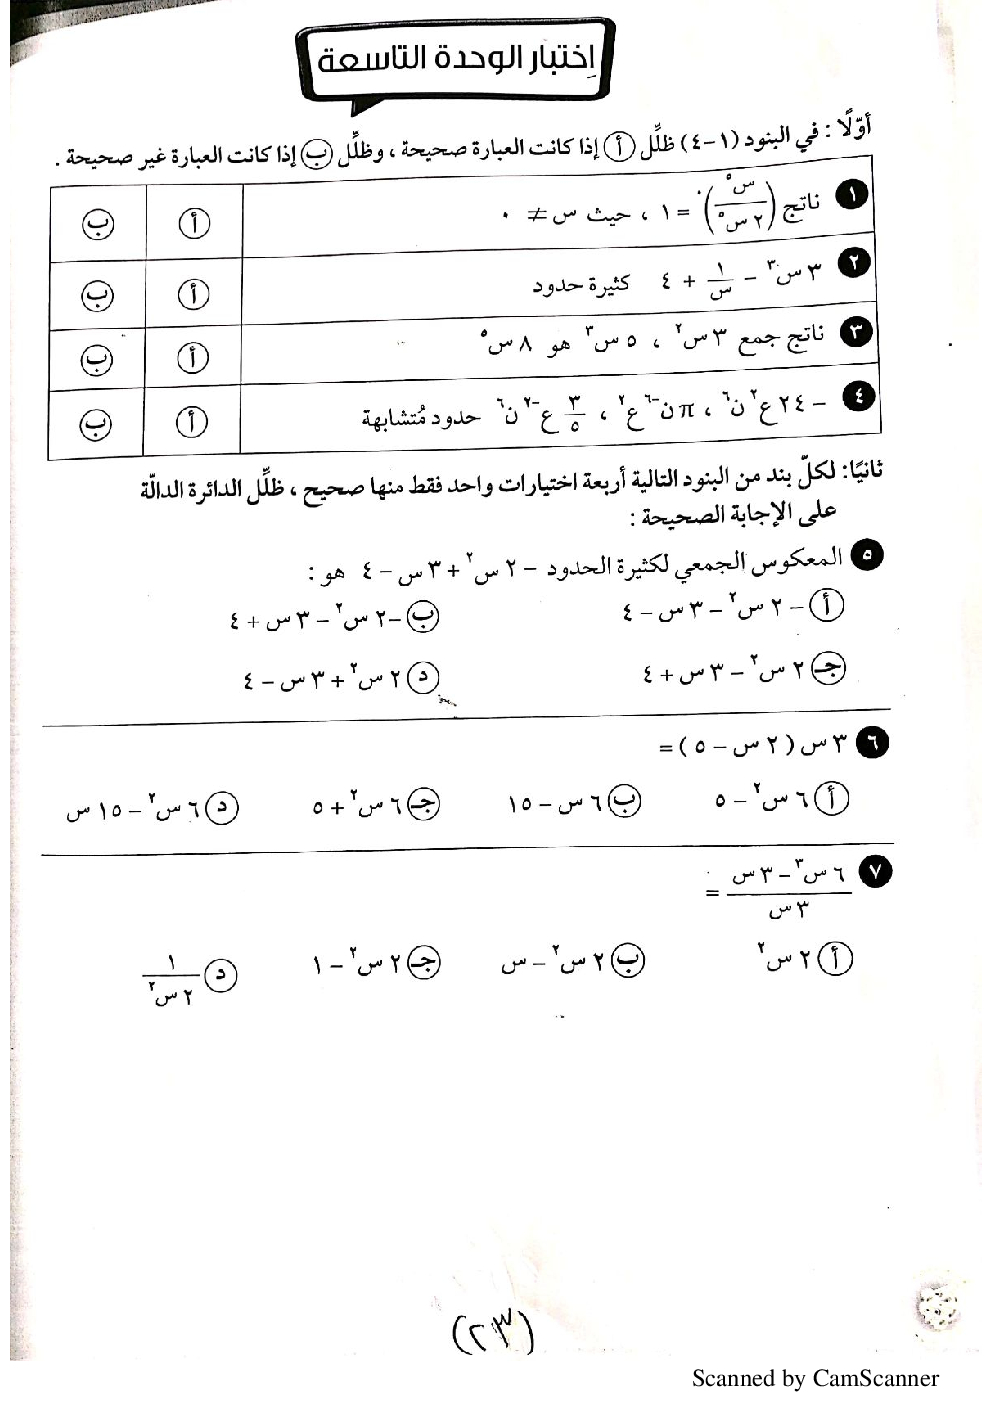 اِختبار الوحدة التاسعة
أوّلًا : في البنود (١-٤) ظلِّل أ إذا كانت العبارة صحيحة ، وظلِّل ب إذا كانت العبارة غير صحيحة .
١ ناتج (س^٥ / ٢س^٥)^٠ = ١ ، حيث س ≠ ٠ أ ب
٢ ٣س^٣ - ١/س + ٤ كثيرة حدود أ ب
٣ ناتج جمع ٣س^٢ ، ٥س^٣ هو ٨س^٥ أ ب
٤ -٢٤ع^٢ن^٦ ، πن^-٦ع^٢ ، ٣/٥ ع^-٢ن^٦ حدود مُتشابهة أ ب
ثانيًا: لكلّ بند من البنود التالية أربعة اختيارات واحد فقط منها صحيح ، ظلِّل الدائرة الدالّة
على الإجابة الصحيحة :
٥ المعكوس الجمعي لكثيرة الحدود -٢س^٢ + ٣س - ٤ هو :
أ -٢س^٢ - ٣س - ٤ ب -٢س^٢ - ٣س + ٤
جـ ٢س^٢ - ٣س + ٤ د ٢س^٢ + ٣س - ٤
٦ ٣س (٢س - ٥) =
أ ٦س^٢ - ٥ ب ٦س - ١٥ جـ ٦س^٢ + ٥ د ٦س^٢ - ١٥س
٧ (٦س^٣ - ٣س) / ٣س =
أ ٢س^٢ ب ٢س^٢ - س جـ ٢س^٢ - ١ د ١ / ٢س^٢
(٢٣)
Scanned by CamScanner